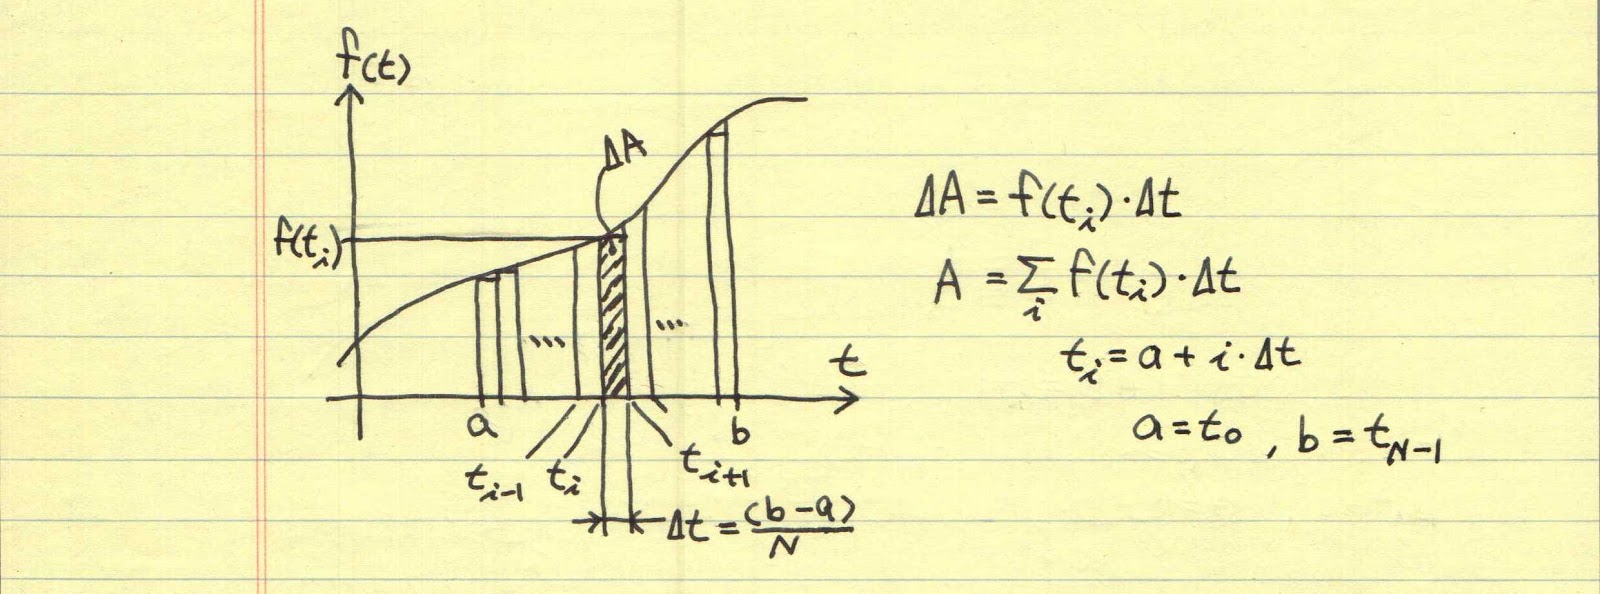 f(t)
ΔA
f(tᵢ)
... ...
t
a b
tᵢ₋₁ tᵢ tᵢ₊₁
Δt = (b-a)/N
ΔA = f(tᵢ)·Δt
A = Σᵢ f(tᵢ)·Δt
tᵢ = a + i·Δt
a = t₀ , b = t_N-1